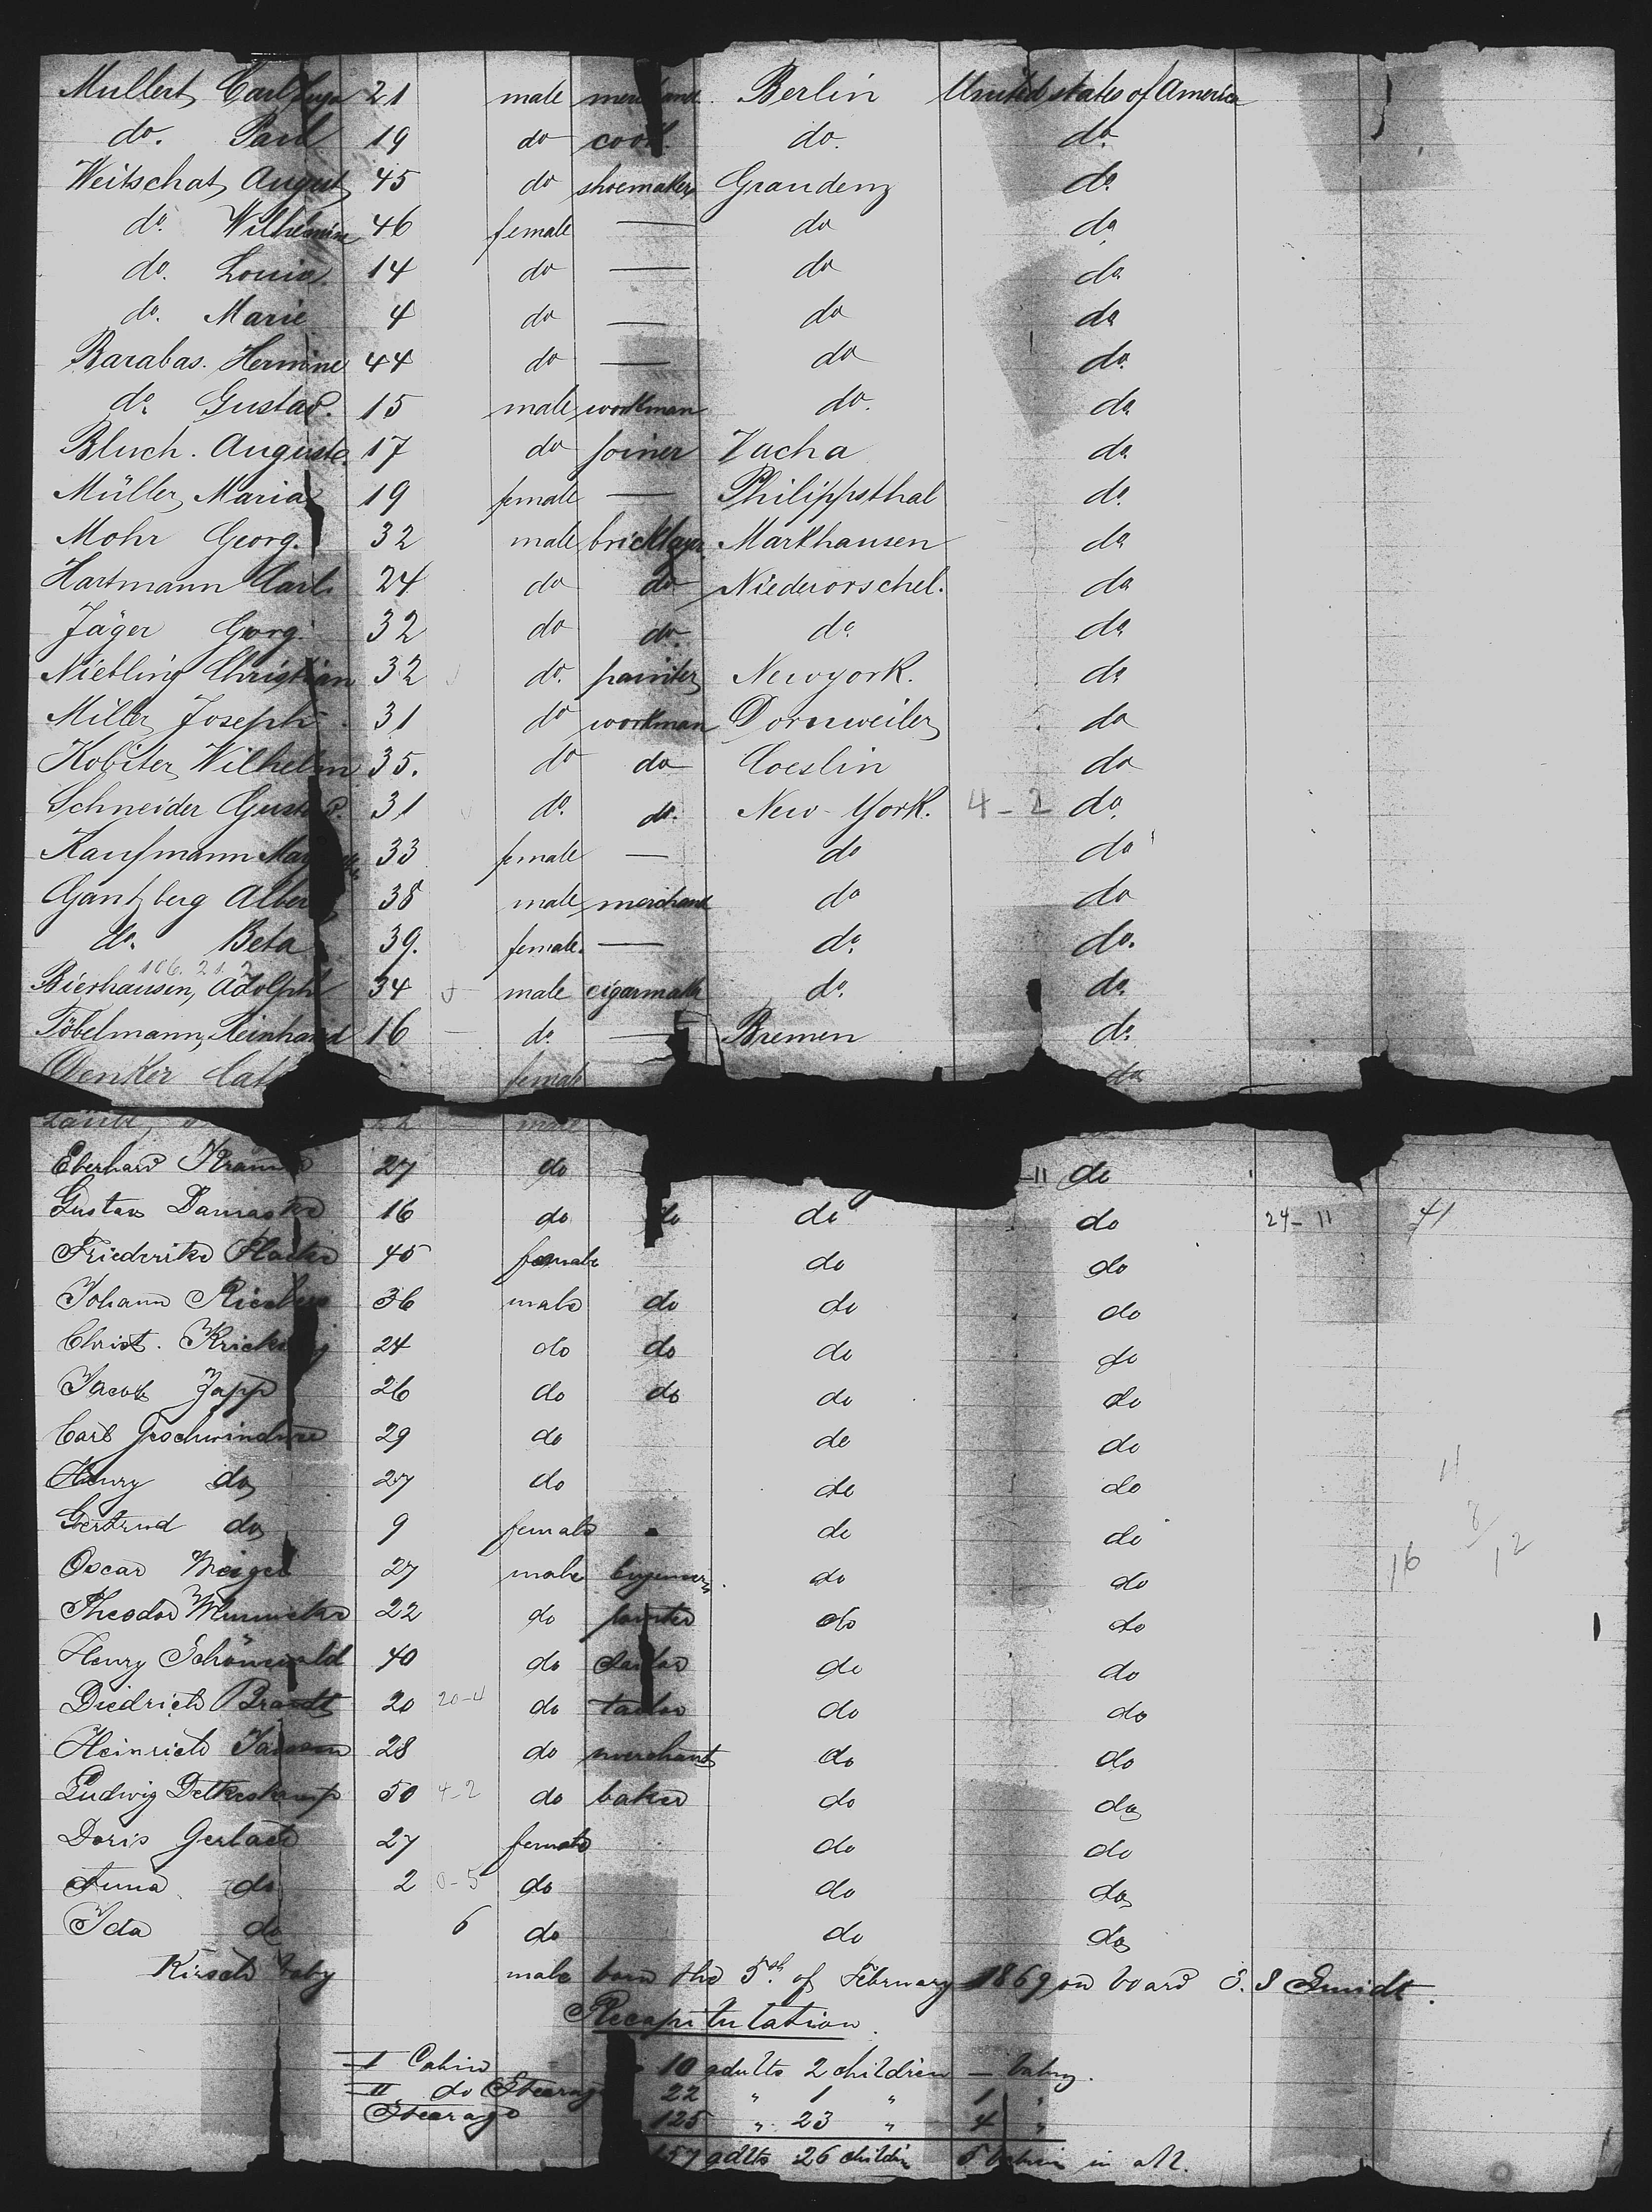 Mullert, Carl Hugo 21 male merchant. Berlin United states of America
do. Paul 19 do cook. do. do.
Weitschat, August 45 do shoemaker Graudenz do.
do. Wilhelmine 46 female — do do
do. Louis 14 do — do do
do. Marie 4 do — do do
Barabas. Hermine 44 do — do do.
do. Gustav. 15 male workman do. do
Bluch. Auguste. 17 do joiner Vacha do
Müller, Maria 19 female — Philippsthal do.
Mohr Georg. 32 male bricklayer Markhausen do
Hartmann Carl. 24 do do Niederorschel. do
Jäger Georg. 32 do do. do. do
Niebling Christian 32 do. painter Newyork. do
Miller, Joseph 31 do workman Dornweiler do
Kobiter, Wilhelm 35. do do Coeslin do
Schneider Gustav. 31 do. do. New-York. 4-2 do.
Kaufmann 33 female — do do
Gantzberg Albert 38 male merchant do do
do. Beta 39. female. — do. do.
106. 21.
Bierhausen, Adolph 34 male cigarmaker do. do.
Töbelmann, Reinhard 16 — do. — Bremen do.
Denker female do
male
Eberhard 27 do -11 do
Gustav Damaske 16 do do do do 24-11 41
Friederike 45 female do do
Johann 36 male do do do
Christ. 24 do do do do
Jacob Zapp 26 do do do do
Carl Geschwindner 29 do do do
Henry do 27 do do do 11
Gertrud do 9 female do do 8
Oscar Weigel 27 male Engineer do do 16 12
Theodor 22 do painter do do
Henry Schönwald 40 do do do
Diedrich Brandt 20 20-4 do tailor do do
Heinrich 28 do merchant do do
Ludwig Detkeskamp 50 4-2 do baker do do
Doris Gerlach 27 female do do
Anna do 2 0-5 do do do
Ida do 6 do do do
Kirsch baby male born the 5th. of February 1869 on board S. S Smidt.
Recapitulation.
I Cabin 10 adults 2 children — baby.
II do Stearage 22 " 1 " 1 "
Stearage 125 " 23 " 4 "
157 adlts 26 childn 5 in all.